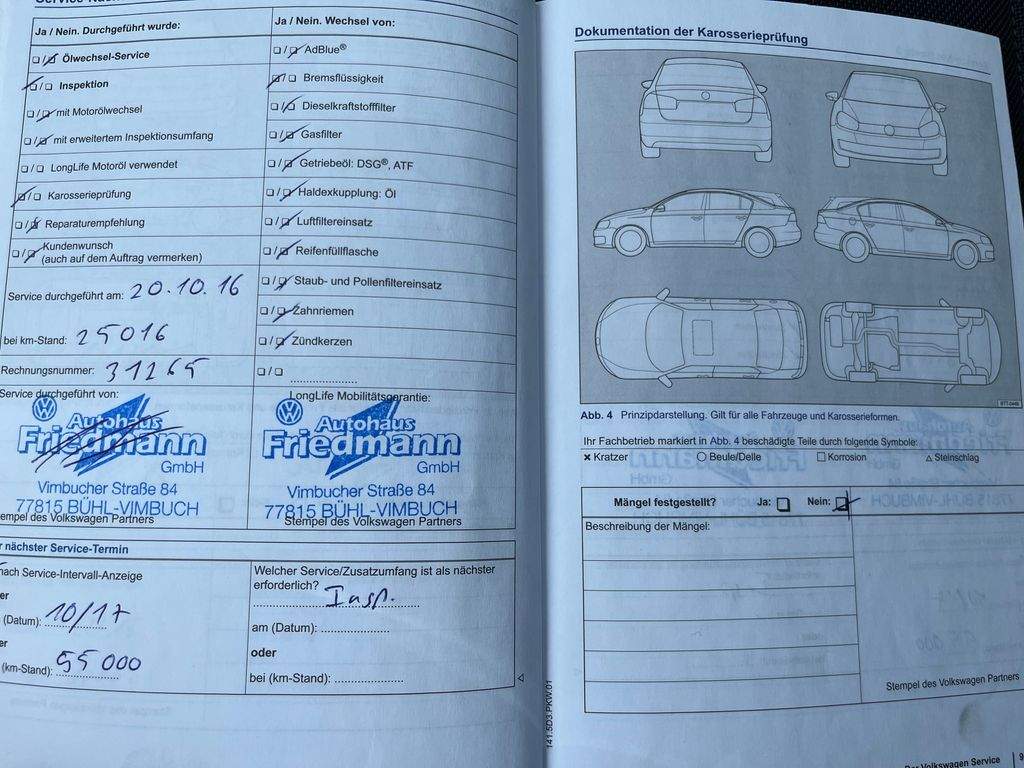 Ja / Nein. Durchgeführt wurde:
Ölwechsel-Service
Inspektion
mit Motorölwechsel
mit erweitertem Inspektionsumfang
LongLife Motoröl verwendet
Karosserieprüfung
Reparaturempfehlung
Kundenwunsch
(auch auf dem Auftrag vermerken)
Service durchgeführt am: 20.10.16
bei km-Stand: 25016
Rechnungsnummer: 31265
Service durchgeführt von:
Autohaus
Friedmann
GmbH
Vimbucher Straße 84
77815 BÜHL-VIMBUCH
Stempel des Volkswagen Partners
Ja / Nein. Wechsel von:
AdBlue®
Bremsflüssigkeit
Dieselkraftstofffilter
Gasfilter
Getriebeöl: DSG®, ATF
Haldexkupplung: Öl
Luftfiltereinsatz
Reifenfüllflasche
Staub- und Pollenfiltereinsatz
Zahnriemen
Zündkerzen
LongLife Mobilitätsgarantie:
Autohaus
Friedmann
GmbH
Vimbucher Straße 84
77815 BÜHL-VIMBUCH
Stempel des Volkswagen Partners
r nächster Service-Termin
nach Service-Intervall-Anzeige
er
(Datum): 10/17
er
(km-Stand): 55 000
Welcher Service/Zusatzumfang ist als nächster
erforderlich?
Insp.
am (Datum):
oder
bei (km-Stand):
141.5D3.PKW.01
Dokumentation der Karosserieprüfung
Abb. 4 Prinzipdarstellung. Gilt für alle Fahrzeuge und Karosserieformen.
Ihr Fachbetrieb markiert in Abb. 4 beschädigte Teile durch folgende Symbole:
× Kratzer ○ Beule/Delle □ Korrosion △ Steinschlag
Mängel festgestellt? Ja: Nein:
Beschreibung der Mängel:
Stempel des Volkswagen Partners
Volkswagen Service